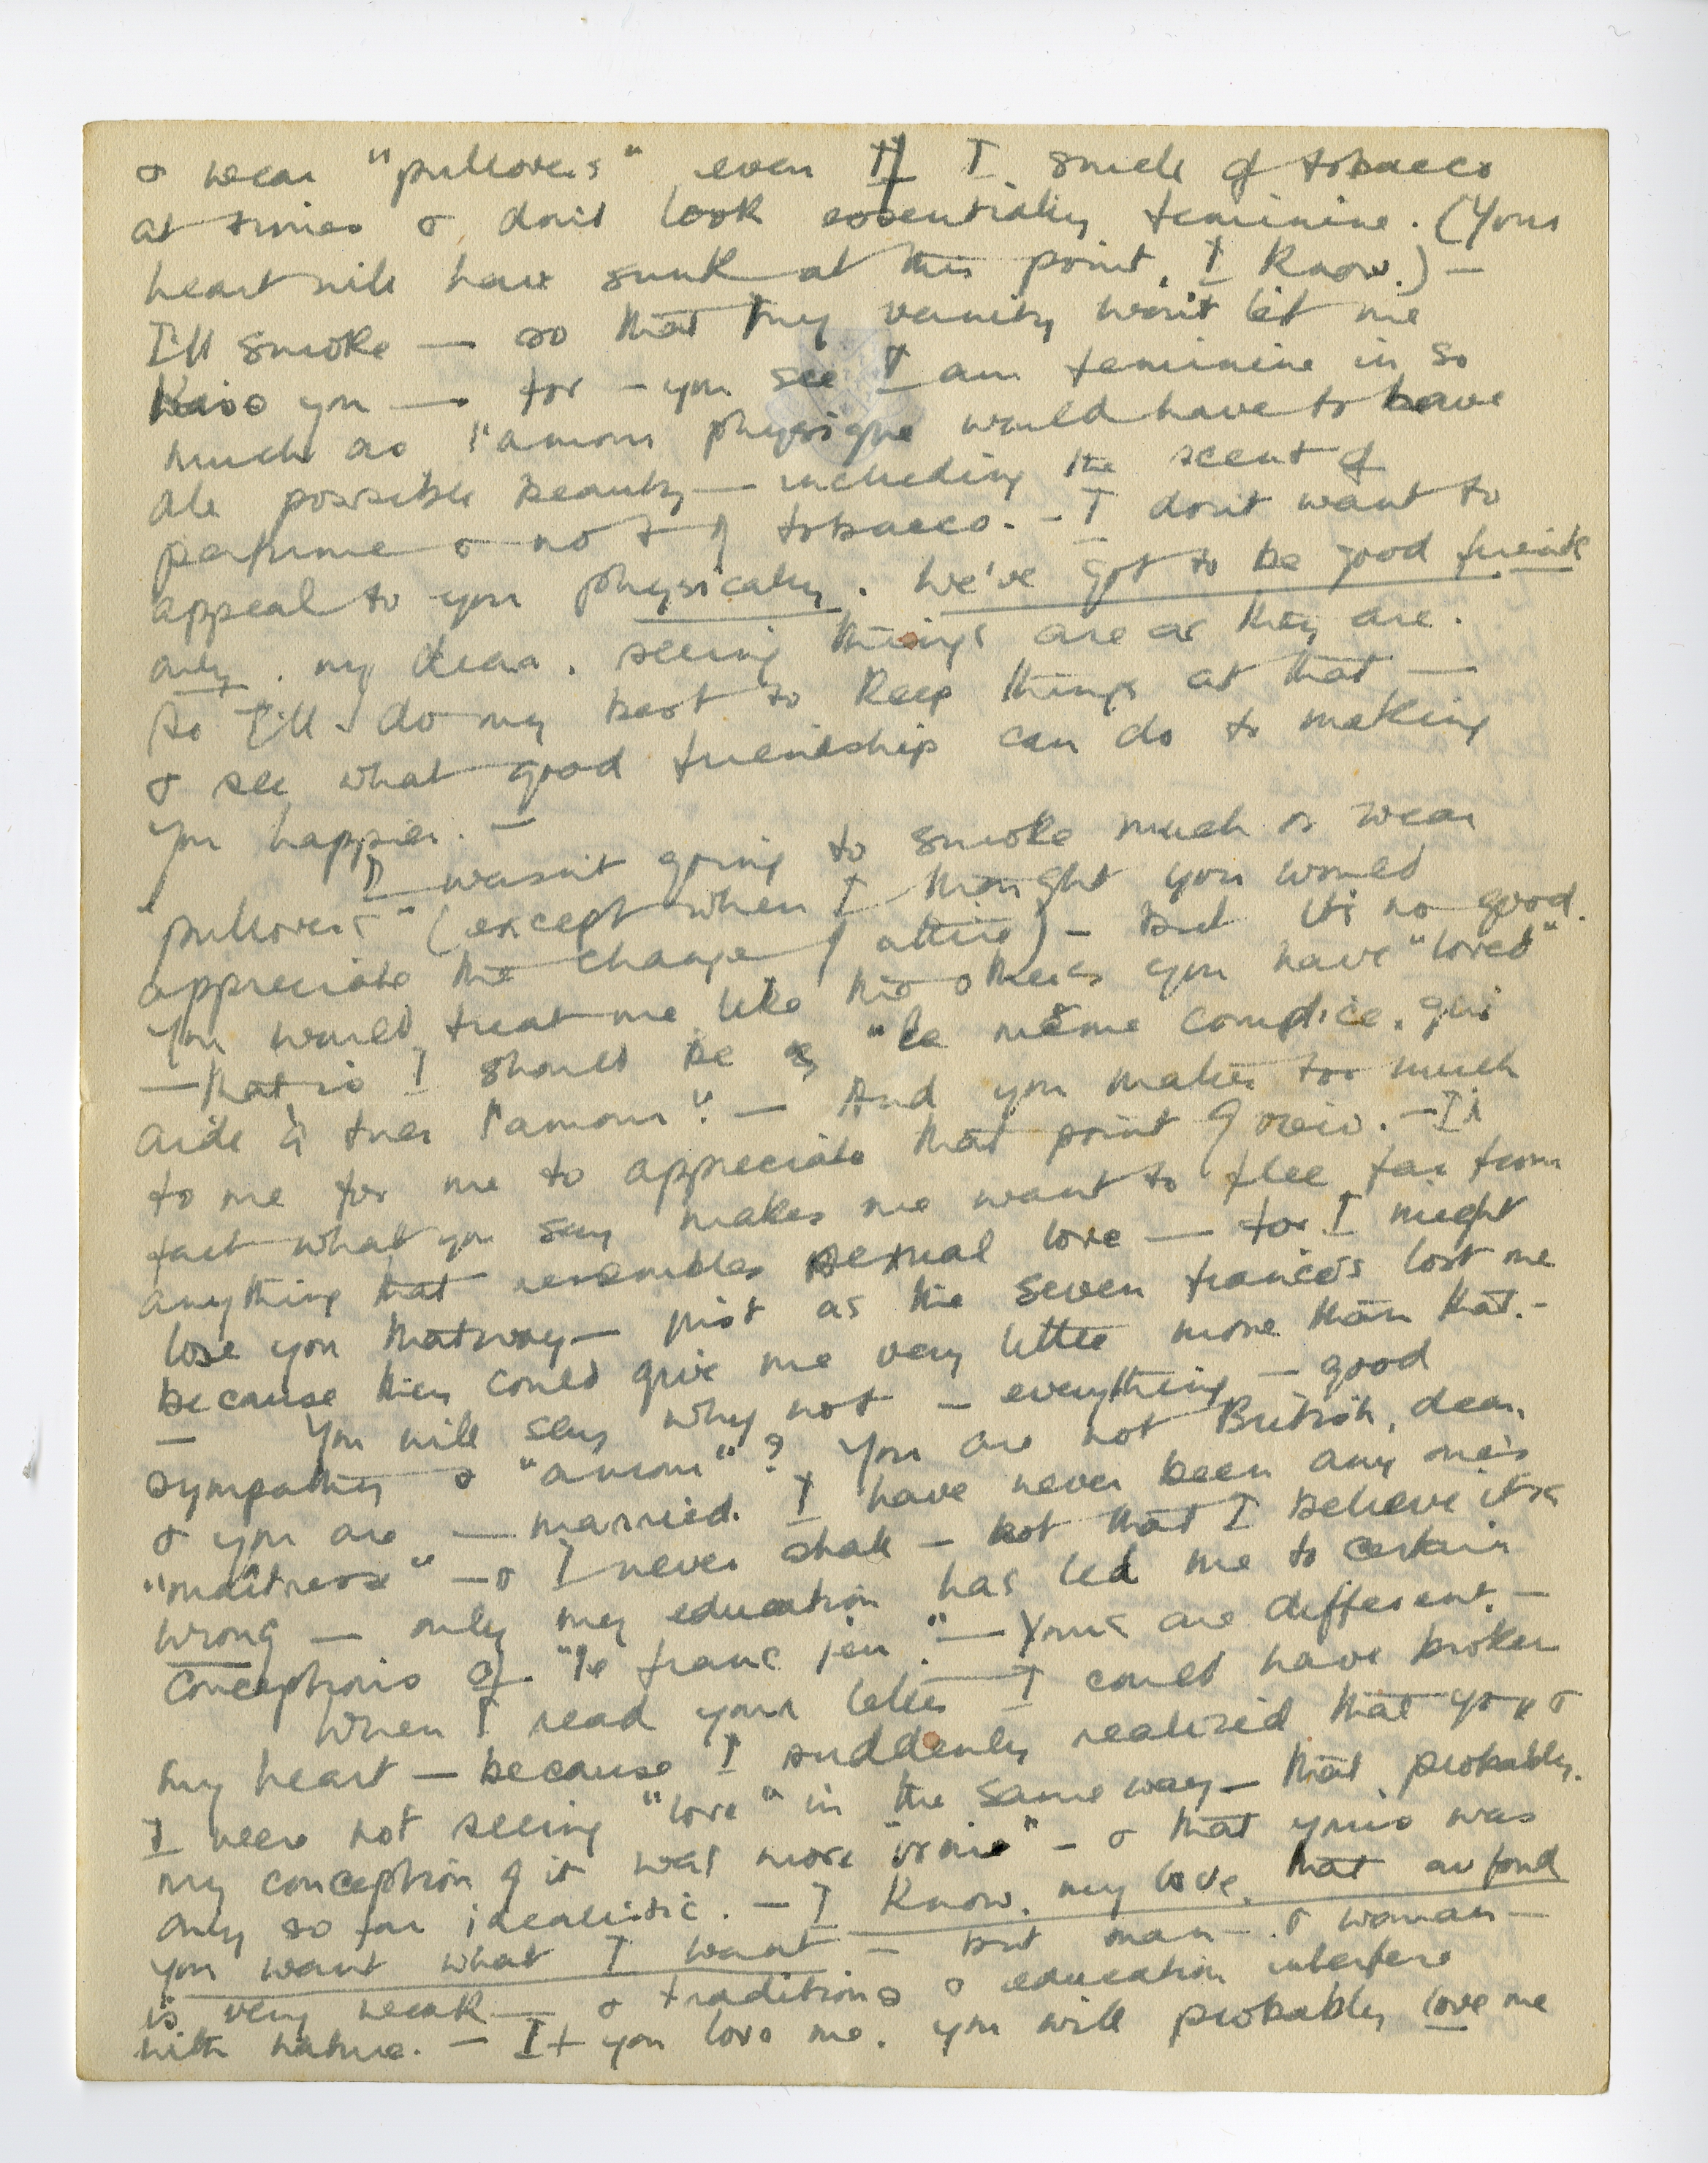 & wear "pullovers" even if I smell of tobacco
at times & don't look essentially feminine. (Your
heart will have sunk at this point, I know.) —
I'll smoke — so that my vanity won't let me
kiss you — for — you see I am feminine in so
much as l'amour physique would have to have
all possible beauty — including the scent of
perfume & not of tobacco. — I don't want to
appeal to you physically. We've got to be good friends
only, my dear, seeing things are as they are.
So I'll do my best to keep things at that —
& see what good friendship can do to making
you happier. —
I wasn't going to smoke much or wear
"pullovers" (except when I thought you would
appreciate the change of attire) — but it's no good.
You would treat me like the others you have "loved"
— that is I should be "le même complice qui
aide à tuer l'amour". — And you matter too much
to me for me to appreciate that point of view. — In
fact what you say makes me want to flee far from
anything that resembles sexual love — for I might
lose you that way — just as the seven fiancés lost me
because they could give me very little more than that. —
— You will say why not — everything — good
sympathy & "amour"? You are not British, dear,
& you are — married. I have never been any one's
"maîtresse" — & I never shall — not that I believe it's
wrong — only my education has led me to certain
conceptions of "le franc jeu" — Yours are different. —
When I read your letter I could have broken
my heart — because I suddenly realized that you &
I were not seeing "love" in the same way — that, probably,
my conception of it was more — & that yours was
only so far idealistic. — I know, my love, that au fond
you want what I want — but man — & woman —
is very weak — & traditions & education interfere
with nature. — If you love me, you will probably love me